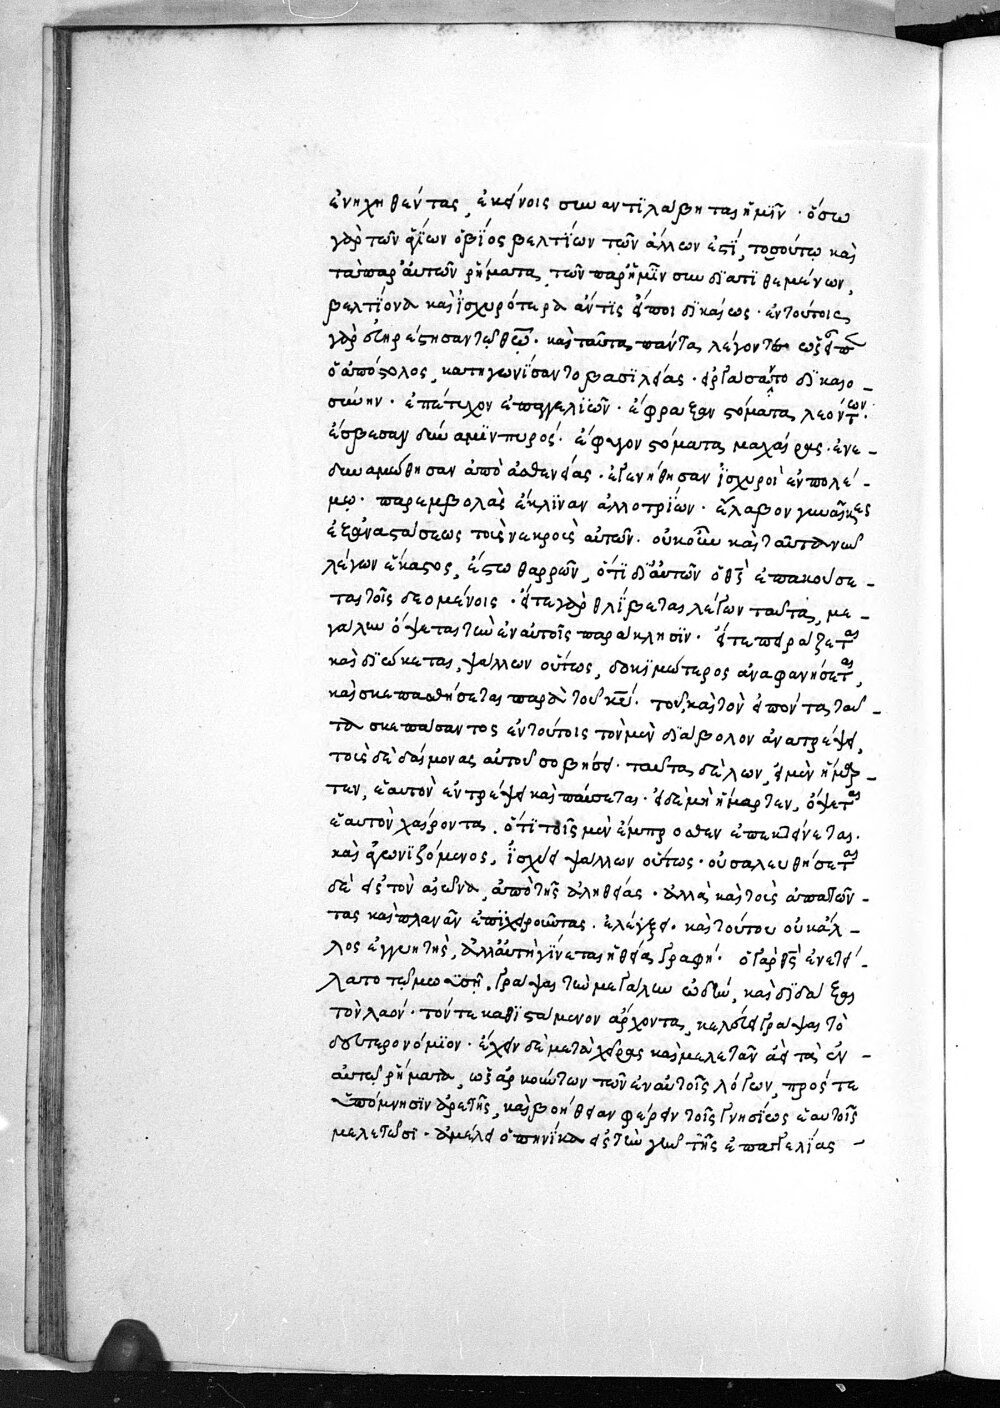 ἐνηχηθέντας, ἐκείνοις συναντιλαβῆται ἡμῖν· ὅσω
γὰρ τῶν ἁγίων ὁ βίος βελτίων τῶν ἄλλων ἐστί, τοσούτω καὶ
τὰ παρ' αὐτῶν ῥήματα, τῶν παρ' ἡμῖν συνδιατιθεμένων,
βελτίονα καὶ ἰσχυρότερα ἄν τις εἴποι δικαίως· ἐν τούτοις
γὰρ εὐηρέστησαν τῶ θεῶ· καὶ ταῦτα πάντα λέγοντες ὡς εἶπεν
ὁ ἀπόστολος, κατηγωνίσαντο βασιλείας· εἰργάσαντο δικαιο-
σύνην· ἐπέτυχον ἐπαγγελιῶν· ἔφραξαν στόματα λεόντων·
ἔσβεσαν δύναμιν πυρός· ἔφυγον στόματα μαχαίρας· ἐνε-
δυναμώθησαν ἀπὸ ἀσθενείας· ἐγενήθησαν ἰσχυροὶ ἐν πολέ-
μω· παρεμβολὰς ἔκλιναν ἀλλοτρίων· ἔλαβον γυναῖκες
ἐξ ἀναστάσεως τοὺς νεκροὺς αὐτῶν· οὐκοῦν καὶ ταῦτα νῦν
λέγων ἕκαστος, ἔστω θαρρῶν, ὅτι δι' αὐτῶν ὁ θς ἐπακούσε-
ται τοῖς δεομένοις· εἴτε γὰρ θλίβεται λέγων ταῦτα, με-
γάλην ὄψεται τὴν ἐν αὐτοῖς παράκλησιν· εἴτε πειράζεται
καὶ διώκεται, ψάλλων οὕτως, δοκιμώτερος ἀναφανήσεται,
καὶ σκεπασθήσεται παρὰ τοῦ κυ· τοῦ καὶ τὸν εἰπόντα ταῦ-
τα σκεπάσαντος ἐν τούτοις τὸν μὲν διάβολον ἀνατρέψει,
τοὺς δὲ δαίμονας αὐτοῦ σοβήσει· ταῦτα δὲ λέγων, εἰ μὲν ἥμαρ-
τεν, ἑαυτὸν ἐντρέψει καὶ παύσεται· εἰ δὲ μὴ ἥμαρτεν, ὄψεται
ἑαυτὸν χαίροντα, ὅτι τοῖς μὲν ἔμπροσθεν ἐπεκτείνεται·
καὶ ἀγωνιζόμενος, ἰσχύει ψάλλων οὕτως· οὐ σαλευθήσεται
δὲ εἰς τὸν αἰῶνα, ἀπὸ τῆς ἀληθείας· ἀλλὰ καὶ τοὺς ἀπατῶν-
τας καὶ πλανᾶν ἐπιχειροῦντας, ἐλέγξει· καὶ τούτου οὐκ ἄλ-
λος ἐγγυητής, ἀλλ' αὐτὴ γίνεται ἡ θεία γραφή· ὁ γὰρ θς ἐνετεί-
λατο τῶ μωυσῆ, γράψαι τὴν μεγάλην ὠδήν, καὶ διδάξαι
τὸν λαόν· τόν τε καθιστάμενον ἄρχοντα, κελεύει γράψαι τὸ
δευτερονόμιον· ἔχειν δὲ μετὰ χεῖρας καὶ μελετᾶν ἀεὶ τὰ ἐν
αὐτῶ ῥήματα, ὡς ἀρκούντων τῶν ἐν αὐτοῖς λόγων, πρός τε
ὑπόμνησιν ἀρετῆς, καὶ βοήθειαν φέρειν τοῖς γνησίως ἑαυτοῖς
μελετῶσι· ἀμέλει ὁπηνίκα εἰς τὴν γῆν τῆς ἐπαγγελίας